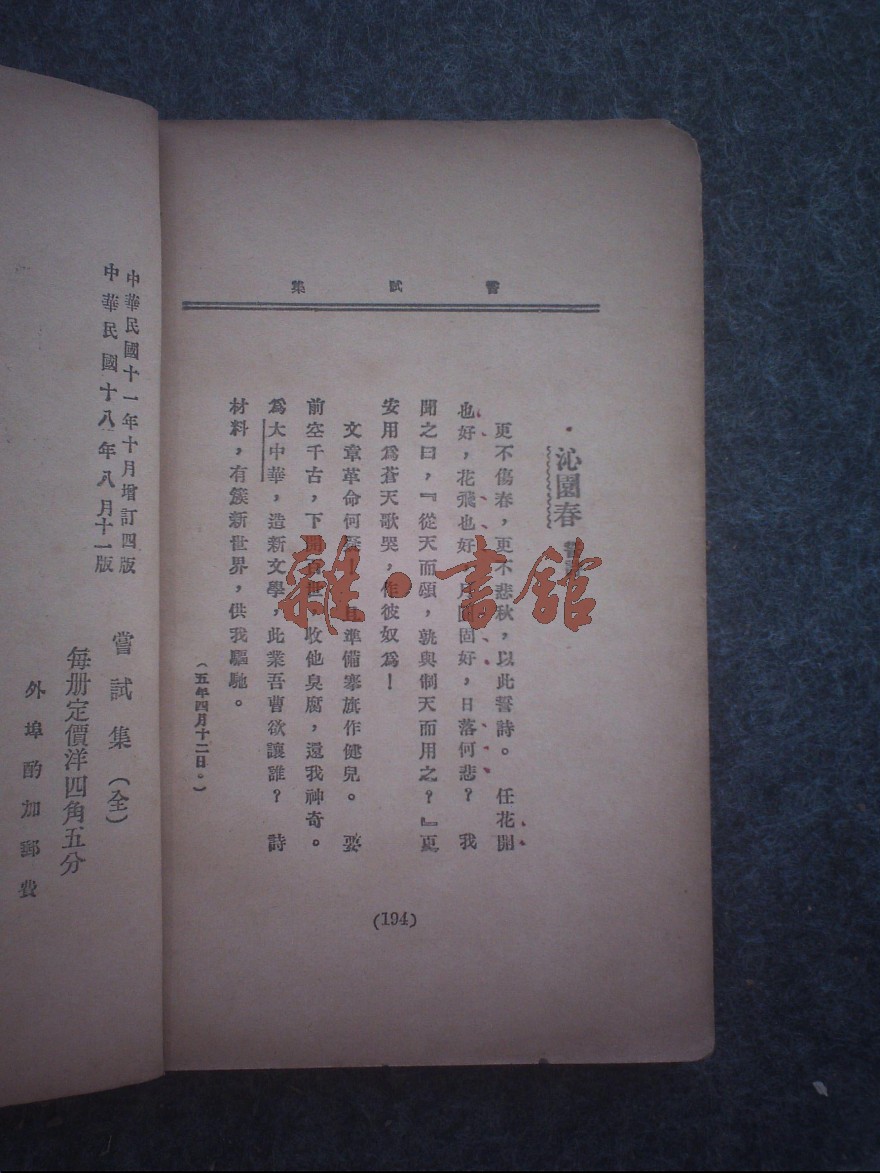 嘗試集
沁園春 誓詩
更不傷春，更不悲秋，以此誓詩。 任花開
也好，花飛也好，月圓固好，日落何悲？ 我
聞之曰，『從天而頌，孰與制天而用之？』更
安用爲蒼天歌哭，作彼奴爲！
文章革命何疑！且準備搴旗作健兒。 要
前空千古，下開百世，收他臭腐，還我神奇。
爲大中華，造新文學，此業吾曹欲讓誰？ 詩
材料，有簇新世界，供我驅馳。
（五年四月十二日。）
(194)
中華民國十一年十月增訂四版
中華民國十八年八月十一版
嘗試集（全）
每册定價洋四角五分
外埠酌加郵費
雜·書館